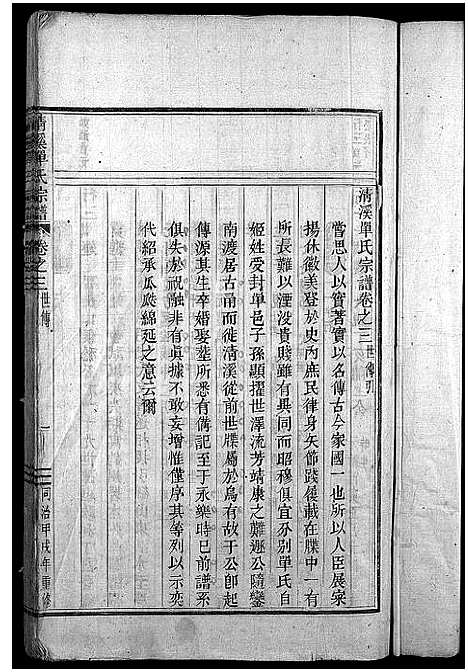 清溪單氏宗譜卷之三世傳引
嘗思人以實著實以名傳古今家國一也所以人臣展采
揚休徽美登於史內庶民律身矢節踐履載在牒中一有
所長難以湮没貴賤雖有異同而昭穆俱宜分别單氏自
姬姓受封單邑子孫顯擢世澤流芳靖康之難遯公隨鑾
南渡居古甬而徙淸溪從前世牒屬於烏有故于公卽起
傳源其生卒婚娶墓所悉有備記至于永樂時已前譜系
俱失於祝融非有眞據不敢妄增惟僅序其等列以示奕
代紹承瓜瓞綿延之意云爾
清溪單氏宗譜
卷之三
世傳
一
同治甲戌年重修